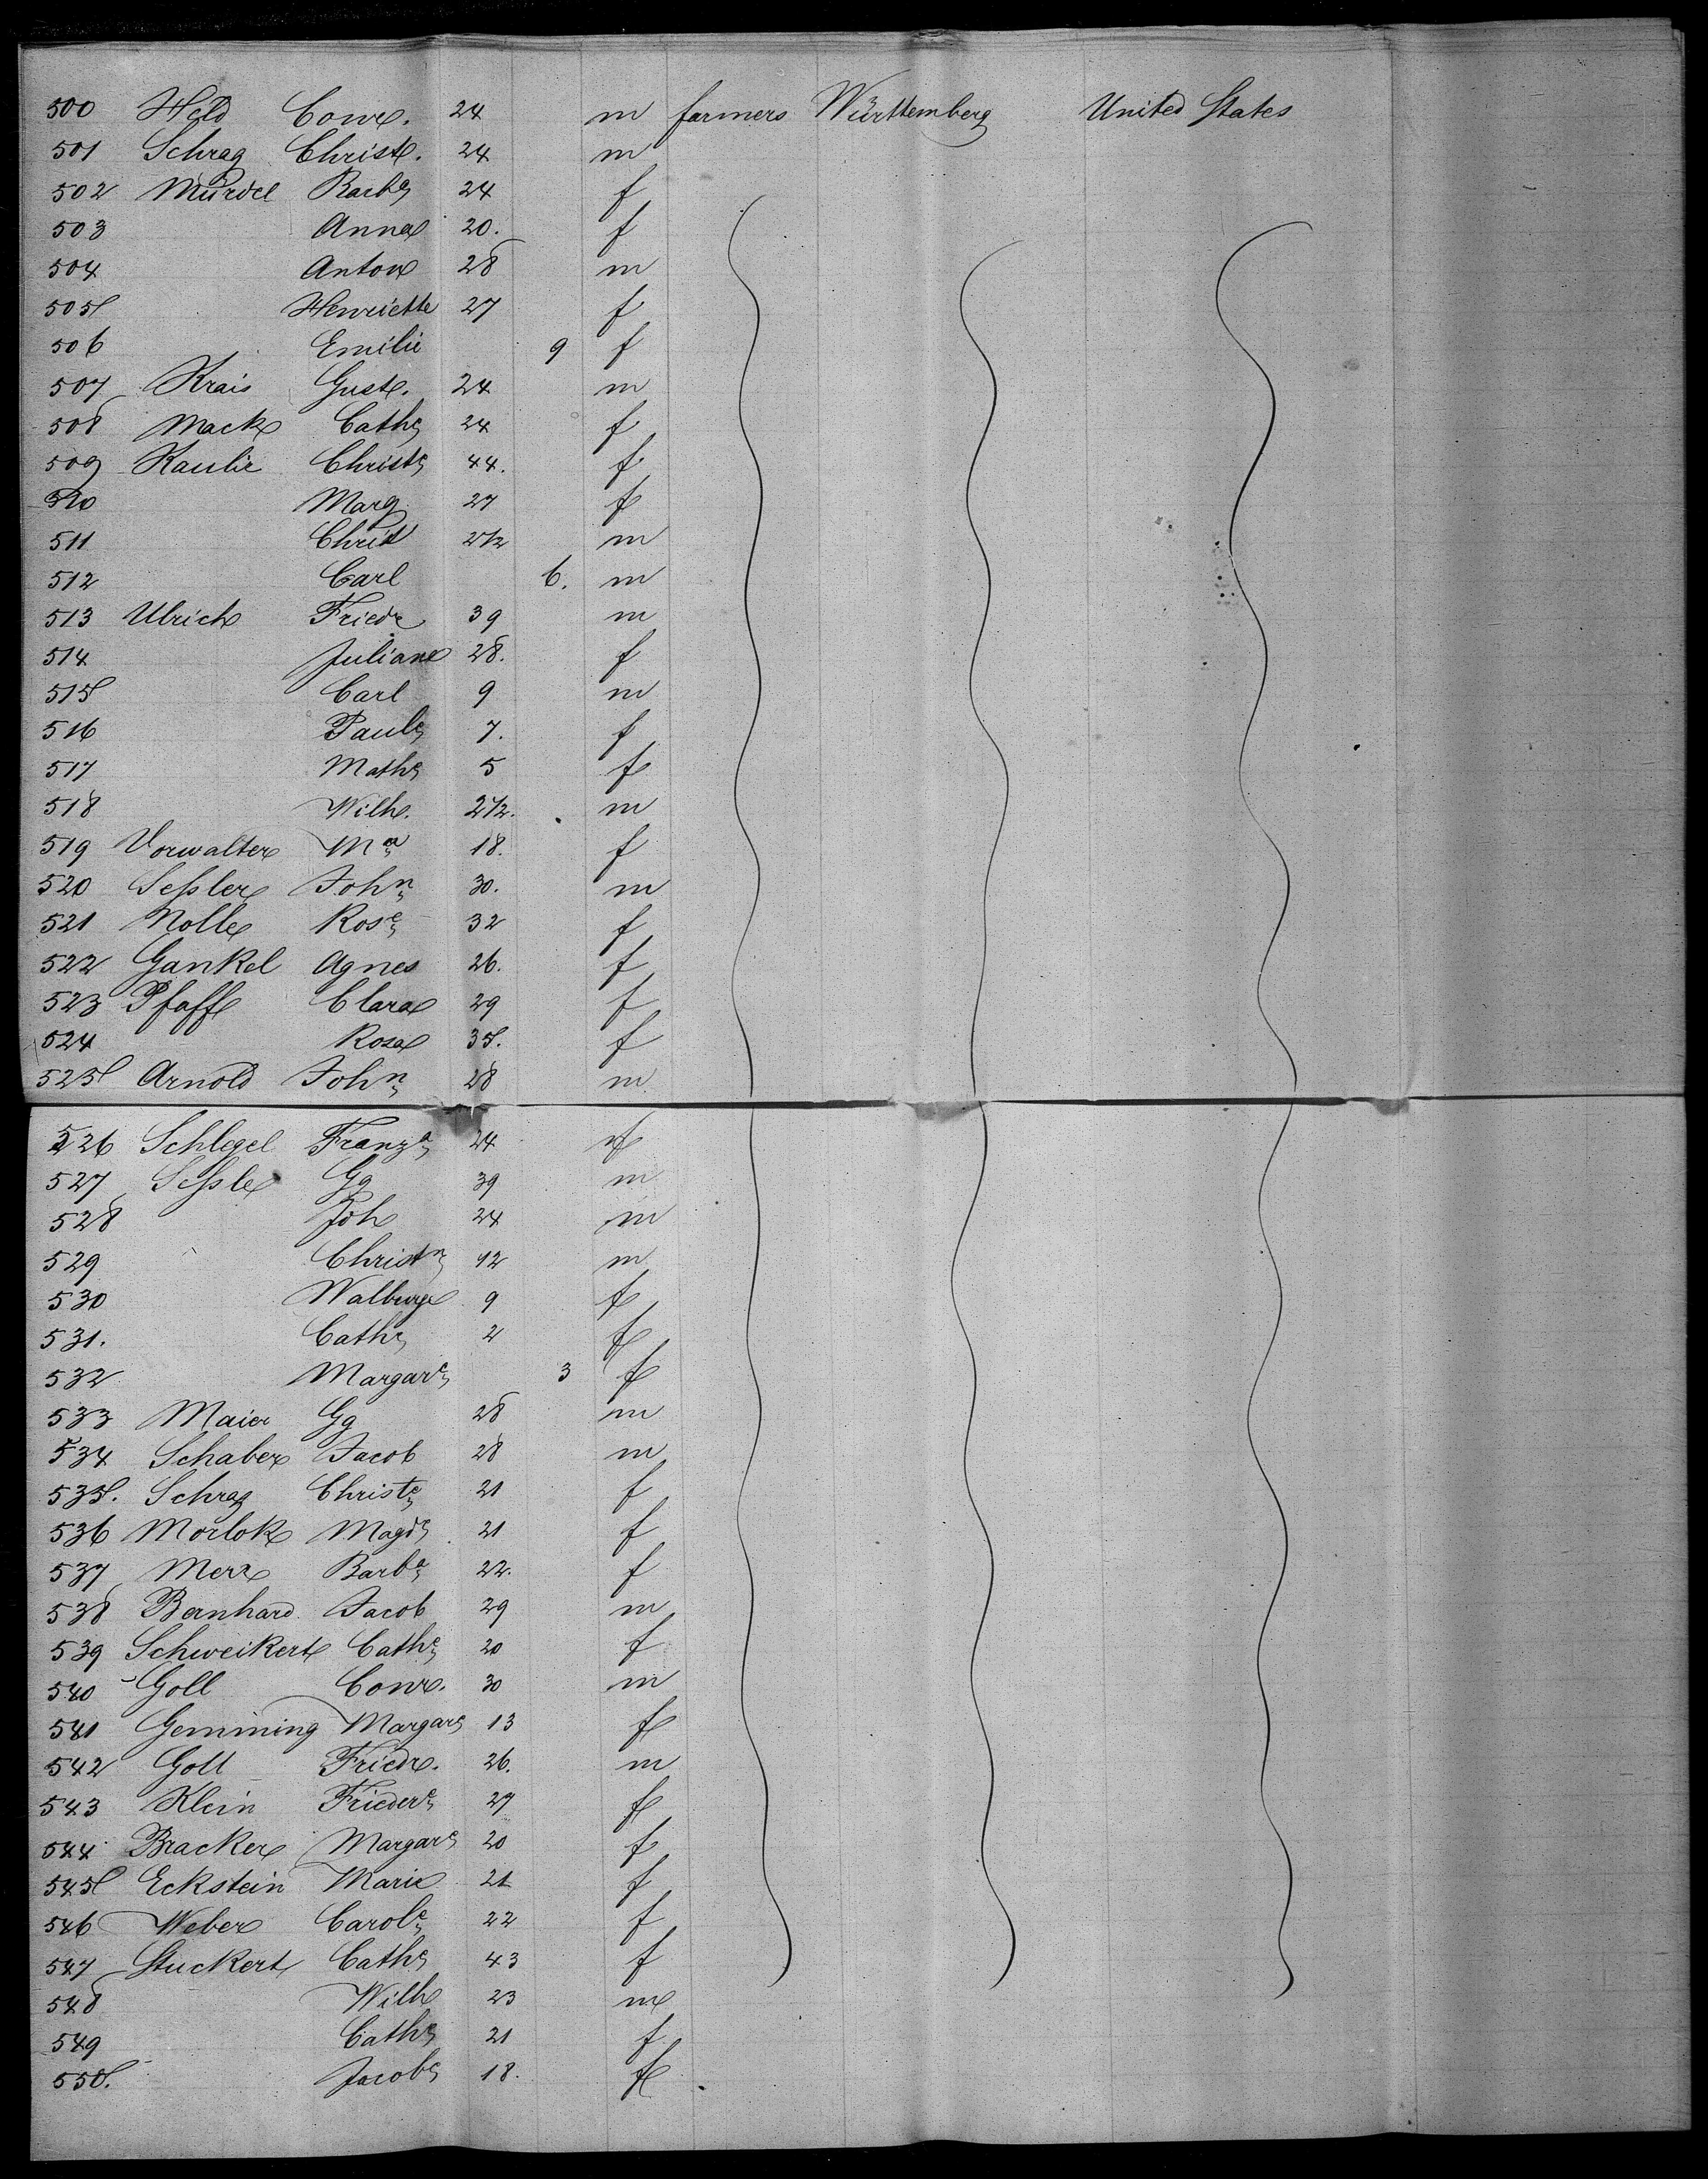 500 Held Conr. 24 m farmers Württemberg United States
501 Schrag Christ. 24 m
502 Mürdel Barba 24 f
503 Anna 20. f
504 Anton 28 m
505 Henriette 27 f
506 Emilie 9 f
507 Krais Gust. 24 m
508 Mack Cathe 24 f
509 Kaulie Christe 44. f
510 Marg 27 f
511 Christ 2 1/2 m
512 Carl 6. m
513 Ulrich Friedr 39 m
514 Juliane 28. f
515 Carl 9 m
516 Paule 7. f
517 Mathe 5 f
518 Wilh. 2 1/2. m
519 Vorwalter Ma 18. f
520 Seßler John 30. m
521 Nolle Rose 32 f
522 Gankel Agnes 26. f
523 Pfaff Clara 29 f
524 Rosa 35. f
525 Arnold John 28 m
526 Schlegel Franza 24 f
527 Seßle Gg 39 m
528 Joh 24 m
529 Christn 12 m
530 Walburga 9 f
531. Cathe 2 f
532 Margare 3 f
533 Maier Gg 28 m
534 Schaber Jacob 28 m
535. Schrag Christe 21 f
536 Morlok Magde 21 f
537 Merz Barba 22. f
538 Bernhard Jacob 29 m
539 Schweikert Cathe 20 f
540 Goll Conr. 30 m
541 Gemming Margare 13 f
542 Goll Friedr. 26. m
543 Klein Friedere 27 f
544 Bracker Margare 20 f
545 Eckstein Marie 21 f
546 Weber Carole 22 f
547 Stuckert Cathe 43 f
548 Wilh 23 m
549 Cathe 21 f
550. Jacobe 18. f